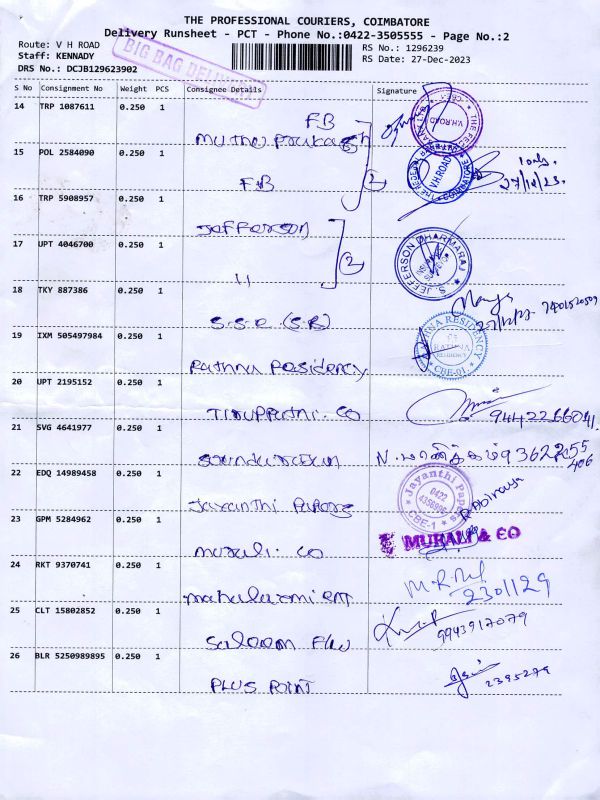 THE PROFESSIONAL COURIERS, COIMBATORE
Delivery Runsheet - PCT - Phone No.:0422-3505555 - Page No.:2
Route: V H ROAD
RS No.: 1296239
Staff: KENNADY
RS Date: 27-Dec-2023
DRS No.: DCJB129623902
BIG BAG DELIVERY
S No Consignment No Weight PCS Consignee Details Signature
14 TRP 1087611 0.250 1
FB
V.H.ROAD
15 POL 2584090 0.250 1
Muthu Prakash
FB
2
V.H.ROAD
1 only.
27/12/23.
16 TRP 5908957 0.250 1
Jefferson
17 UPT 4046700 0.250 1
2
S. JEFFERSON DHARMARAJ
18 TKY 887386 0.250 1
S.S.R (S.R)
19 IXM 505497984 0.250 1
Rathna Residency
RATHNA RESIDENCY
CBE-01
20 UPT 2195152 0.250 1
Tiruppathi. CO
9442266041.
21 SVG 4641977 0.250 1
N. மாணிக்கம்
22 EDQ 14989458 0.250 1
Jayanthi Papers
Jayanthi Papers
0422
CBE-1
23 GPM 5284962 0.250 1
Murali. CO
MURALI & CO
24 RKT 9370741 0.250 1
Mahalaxmi ENT
2301129
25 CLT 15802852 0.250 1
Saleem
9943917079
26 BLR 5250989895 0.250 1
PLUS POINT
2395279